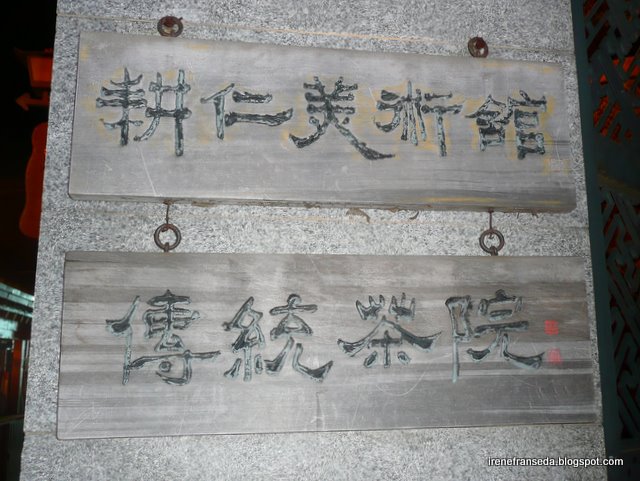 耕仁美術館
傳統茶院
irenefranseda.blogspot.com